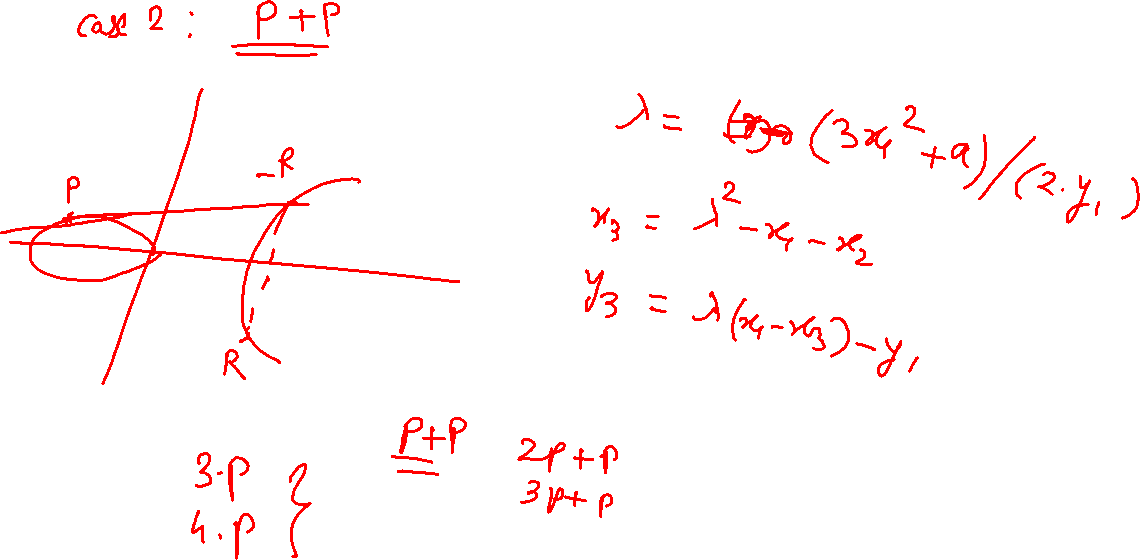 case 2 : P+P
P
-R
R
λ = (3x₁² + a)/(2.y₁)
x₃ = λ² - x₁ - x₂
y₃ = λ(x₁ - x₃) - y₁
P+P
3.P
4.P
2P+P
3P+P